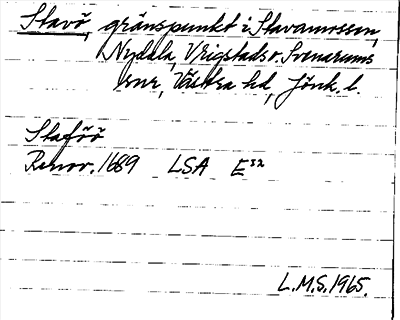 Stavö, gränspunkt i Stavamossen,
Nydala, Vrigstads o. Svenarums
snr, Västra hd, Jönk. l.
Staföö
Renov. 1689 LSA E52
L.M.S. 1965.